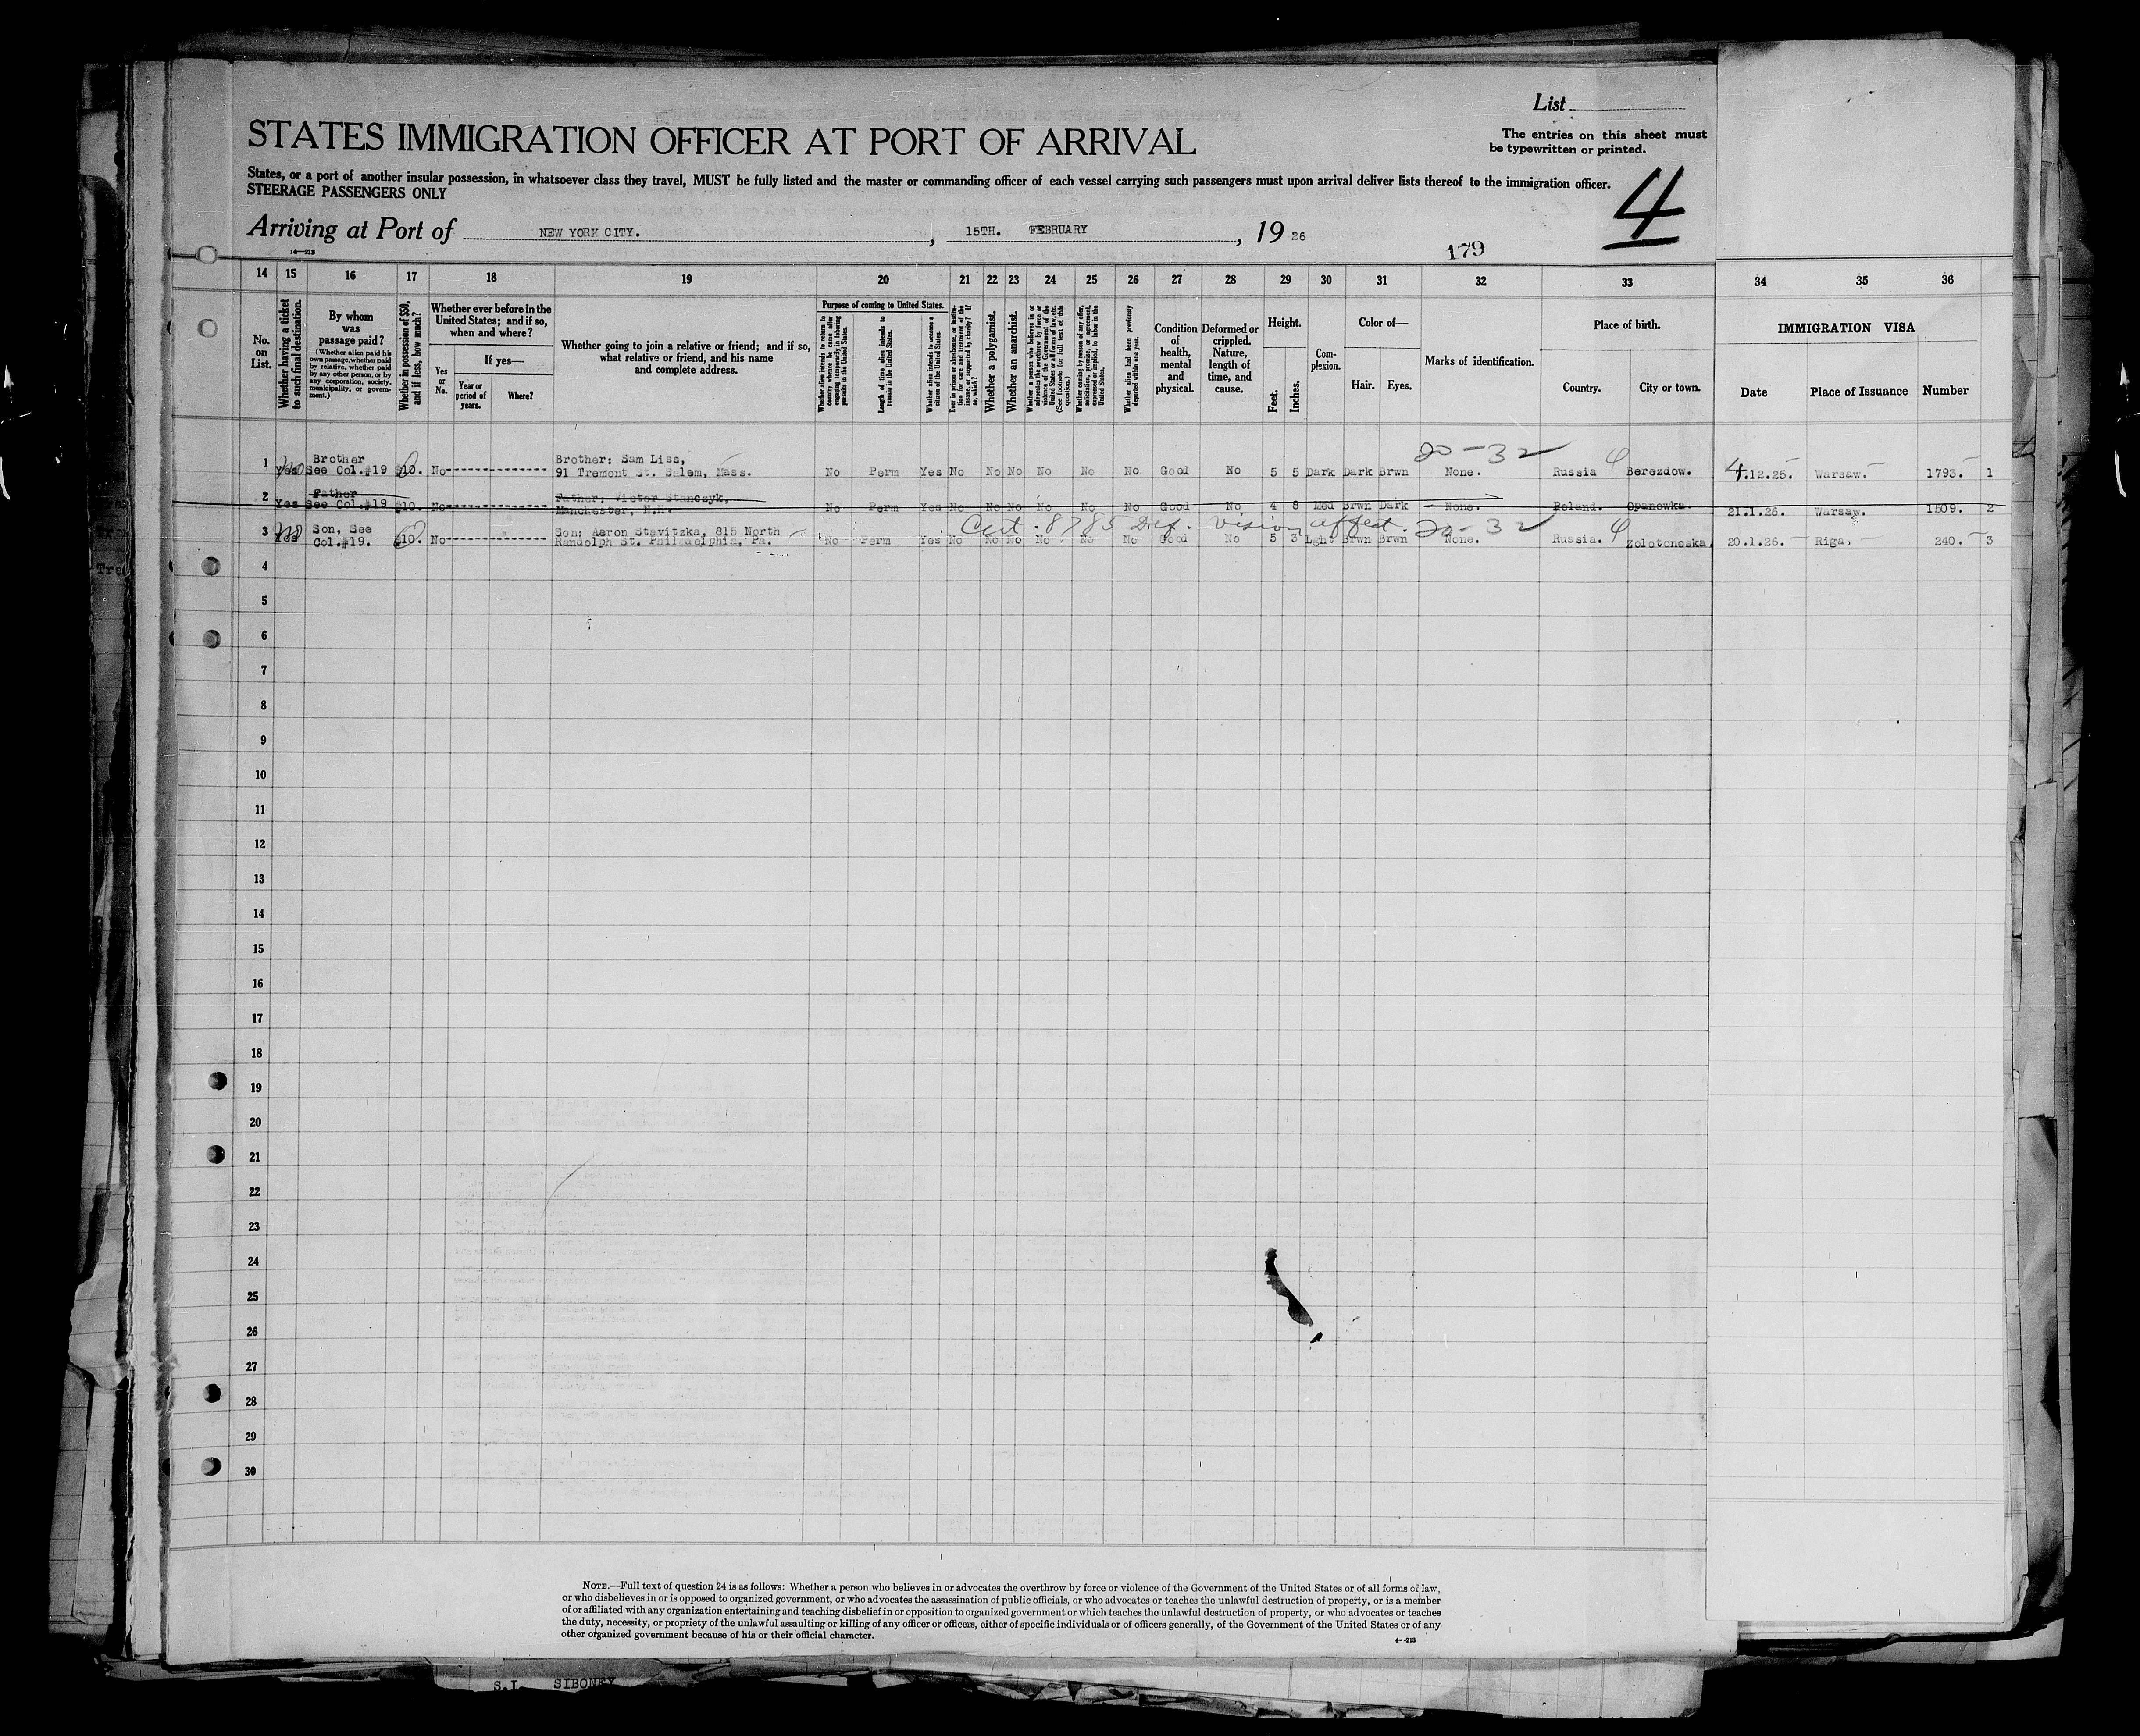 List
STATES IMMIGRATION OFFICER AT PORT OF ARRIVAL
The entries on this sheet must
be typewritten or printed.
States, or a port of another insular possession, in whatsoever class they travel, MUST be fully listed and the master or commanding officer of each vessel carrying such passengers must upon arrival deliver lists thereof to the immigration officer.
STEERAGE PASSENGERS ONLY
4
Arriving at Port of NEW YORK CITY. , 15TH. FEBRUARY , 19 26
179
14 15 16 17 18 19 20 21 22 23 24 25 26 27 28 29 30 31 32 33 34 35 36
No. on List.
Whether having a ticket to such final destination.
By whom was passage paid?
(Whether alien paid his own passage, whether paid by relative, whether paid by any other person, or by any corporation, society, municipality, or government.)
Whether in possession of $50, and if less, how much?
Whether ever before in the United States; and if so, when and where?
Yes or No.
If yes—
Year or period of years.
Where?
Whether going to join a relative or friend; and if so, what relative or friend, and his name and complete address.
Purpose of coming to United States.
Whether alien intends to return to country whence he came after engaging temporarily in laboring pursuits in the United States.
Length of time alien intends to remain in the United States.
Whether alien intends to become a citizen of the United States.
Ever in prison or almshouse, or institution for care and treatment of the insane, or supported by charity? If so, which?
Whether a polygamist.
Whether an anarchist.
Whether a person who believes in or advocates the overthrow by force or violence of the Government of the United States or all forms of law, etc. (See footnote for full text of this question.)
Whether coming by reason of any offer, solicitation, promise, or agreement, expressed or implied, to labor in the United States.
Whether alien had been previously deported within one year.
Condition of health, mental and physical.
Deformed or crippled. Nature, length of time, and cause.
Height.
Feet. Inches.
Complexion.
Color of—
Hair. Eyes.
Marks of identification.
Place of birth.
Country. City or town.
IMMIGRATION VISA
Date Place of Issuance Number
20-32
1 Yes Brother See Col.#19 $10. No Brother; Sam Liss, 91 Tremont St. Salem, Mass. No Perm Yes No No No No No No Good No 5 5 Dark Dark Brwn None. Russia Berezdow. 4.12.25. Warsaw. 1793. 1
2 Yes Father See Col.#19 $10. No Father; Victor Stanczyk, Manchester, N.H. No Perm Yes No No No No No No Good No 4 8 Med Brwn Dark None. Poland. Opanowka. 21.1.26. Warsaw. 1509. 2
Cert. 8785 Def. vision affect. 20-32
3 Yes Son, See Col.#19. $10. No Son; Aaron Stavitzka, 815 North Randolph St. Philadelphia, Pa. No Perm Yes No No No No No No Good No 5 3 Lght Brwn Brwn None. Russia. Zolotonoska 20.1.26. Riga, 240. 3
4
5
6
7
8
9
10
11
12
13
14
15
16
17
18
19
20
21
22
23
24
25
26
27
28
29
30
NOTE.—Full text of question 24 is as follows: Whether a person who believes in or advocates the overthrow by force or violence of the Government of the United States or of all forms of law,
or who disbelieves in or is opposed to organized government, or who advocates the assassination of public officials, or who advocates or teaches the unlawful destruction of property, or is a member
of or affiliated with any organization entertaining and teaching disbelief in or opposition to organized government or which teaches the unlawful destruction of property, or who advocates or teaches
the duty, necessity, or propriety of the unlawful assaulting or killing of any officer or officers, either of specific individuals or of officers generally, of the Government of the United States or of any
other organized government because of his or their official character.
S.I. SIBONEY